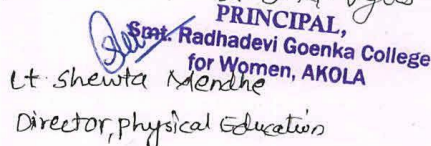 PRINCIPAL,
Smt. Radhadevi Goenka College
for Women, AKOLA
Lt. Shewta Mendhe
Director, physical Education